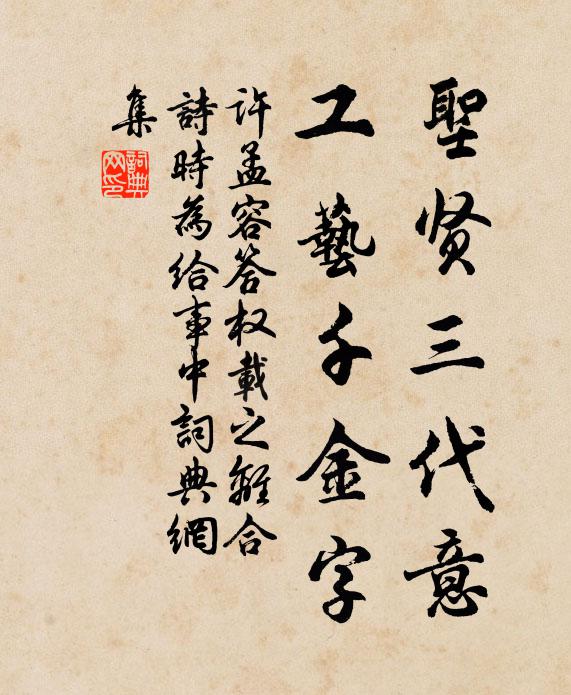 聖贤三代意
工藝千金字
许孟容答权載之離合
詩時為给事中詞典網
集
詞典網印